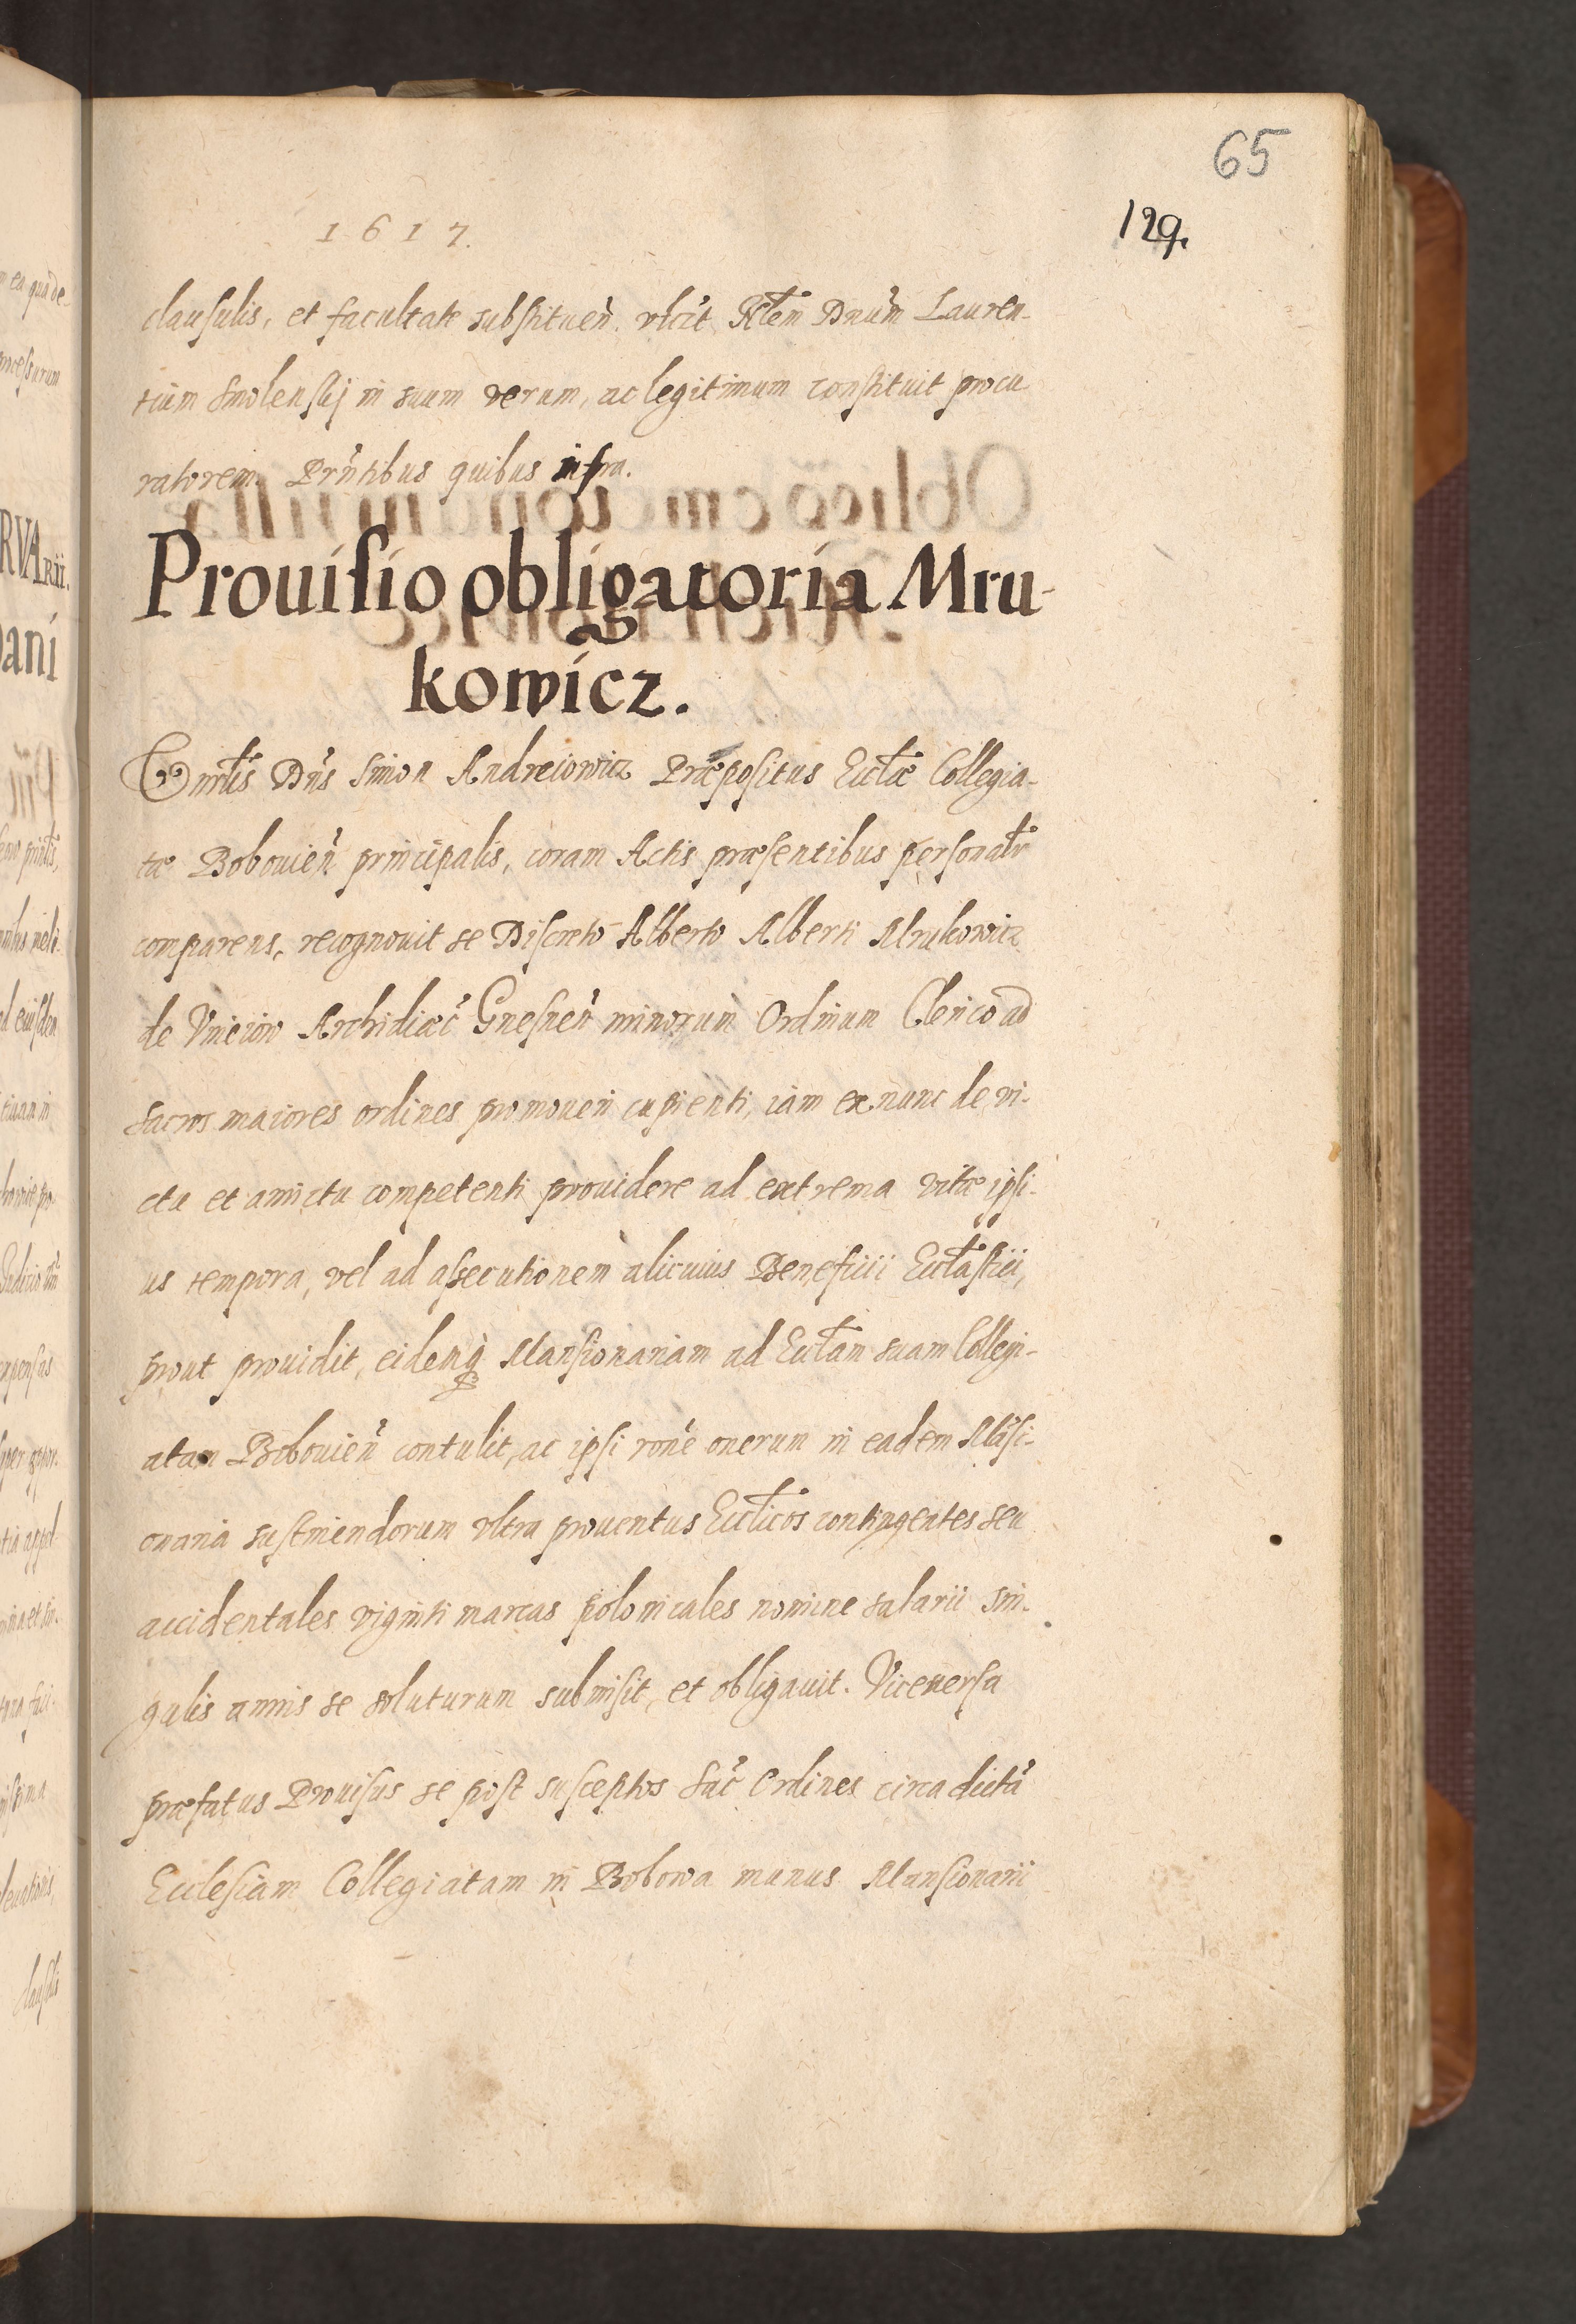 65
129.
1617.
clausulis, et facultate substituen̄. vłcit Dnūm Lauren-
tium Smolenskj in suum verum, ac legitimum constituit procu
ratorem. Prn̄tibus quibus infra.
Prouisio obligatoria Mru-
kowicz.
Dn̄s Simon Andreiowicz Præpositus Eccłæ Collegia-
tæ Bobouien̄ principalis, coram Actis præsentibus personałr
comparens, recognouit se Discreto Alberto Alberti Mrukowicz
de Vnieiow Archidiac̄ Gnesnen̄ minorum Ordinum Clerico ad
sacros maiores ordines promoueri cupienti, iam ex nunc de vi-
ctu et amictu competenti prouidere ad extrema vitæ ipsi-
us tempora, vel ad assecutionem alicuius Beneficii Eccłastici,
prout prouidit, eidemq̨ Mansionariam ad Eccłam suam Collegi-
atam Bobouien̄ contulit, ac ipsi ron̄e onerum in eadem Māsi-
onaria sustinendorum vltra prouentus Eccłicos contingentes seu
accidentales viginti marcas polonicales nomine salarii sin-
gulis annis se soluturum submisit, et obligauit. Viceuersa
præfatus Prouisus se post susceptos Sac̄ Ordines circa dictā
Ecclesiam Collegiatam in Bobowa munus Mansionarii